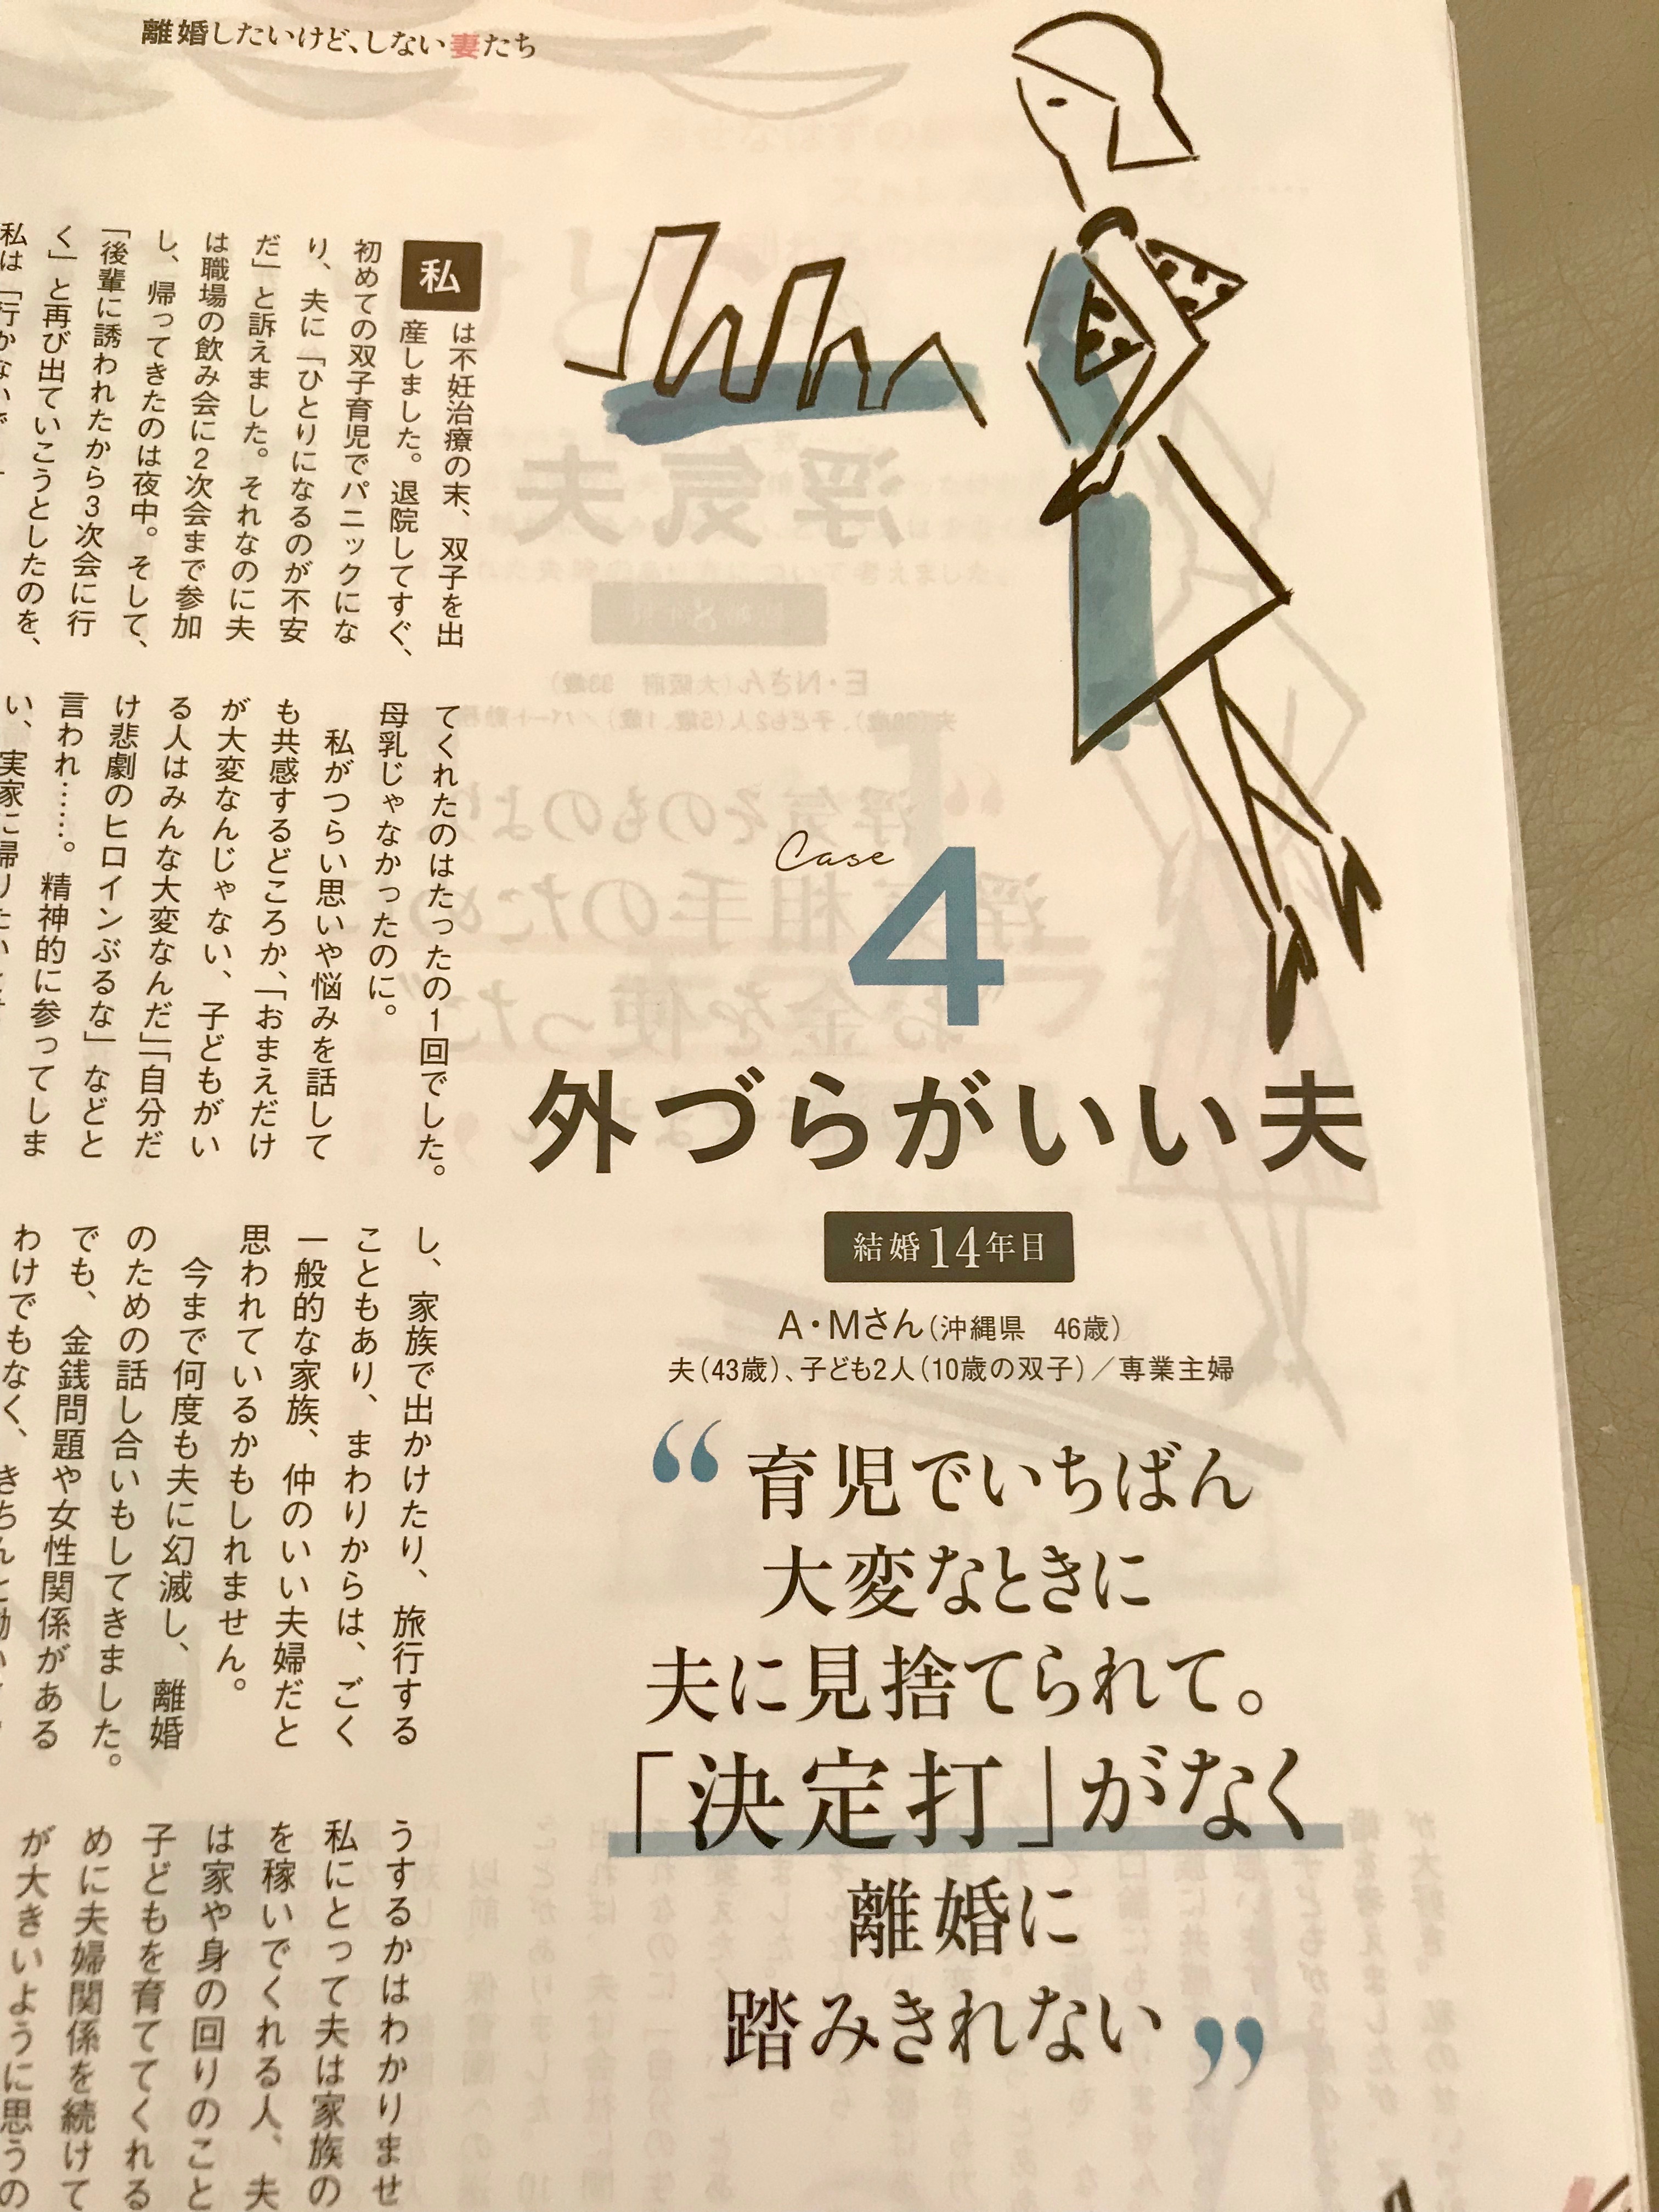 離婚したいけど、しない妻たち
Case
4
外づらがいい夫
結婚14年目
A・Mさん（沖縄県　46歳）
夫（43歳）、子ども2人（10歳の双子）／専業主婦
“育児でいちばん
大変なときに
夫に見捨てられて。
「決定打」がなく
離婚に
踏みきれない”
私は不妊治療の末、双子を出
産しました。退院してすぐ、
初めての双子育児でパニックにな
り、夫に「ひとりになるのが不安
だ」と訴えました。それなのに夫
は職場の飲み会に2次会まで参加
し、帰ってきたのは夜中。そして、
「後輩に誘われたから3次会に行
く」と再び出ていこうとしたのを、
私は「行かないで
てくれたのはたったの1回でした。
母乳じゃなかったのに。
私がつらい思いや悩みを話して
も共感するどころか、「おまえだけ
が大変なんじゃない、子どもがい
る人はみんな大変なんだ」「自分だ
け悲劇のヒロインぶるな」などと
言われ……。精神的に参ってしま
い、実家に帰りたい
し、家族で出かけたり、旅行する
こともあり、まわりからは、ごく
一般的な家族、仲のいい夫婦だと
思われているかもしれません。
今まで何度も夫に幻滅し、離婚
のための話し合いもしてきました。
でも、金銭問題や女性関係がある
わけでもなく、きちんと働い
うするかはわかりませ
私にとって夫は家族の
を稼いでくれる人、夫
は家や身の回りのこと
子どもを育ててくれる
めに夫婦関係を続けて
が大きいように思うの